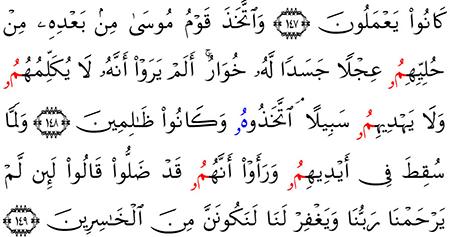 كَانُوا۟ يَعْمَلُونَ ﴿١٤٧﴾ وَٱتَّخَذَ قَوْمُ مُوسَىٰ مِنۢ بَعْدِهِۦ مِنْ
حُلِيِّهِمُۥ عِجْلًا جَسَدًا لَهُۥ خُوَارٌ ۚ أَلَمْ يَرَوْا۟ أَنَّهُۥ لَا يُكَلِّمُهُمُۥ
وَلَا يَهْدِيهِمُۥ سَبِيلًا ۘ ٱتَّخَذُوهُۥ وَكَانُوا۟ ظَـٰلِمِينَ ﴿١٤٨﴾ وَلَمَّا
سُقِطَ فِىٓ أَيْدِيهِمُۥ وَرَأَوْا۟ أَنَّهُمُۥ قَدْ ضَلُّوا۟ قَالُوا۟ لَئِن لَمْ
يَرْحَمْنَا رَبُّنَا وَيَغْفِرْ لَنَا لَنَكُونَنَّ مِنَ ٱلْخَـٰسِرِينَ ﴿١٤٩﴾